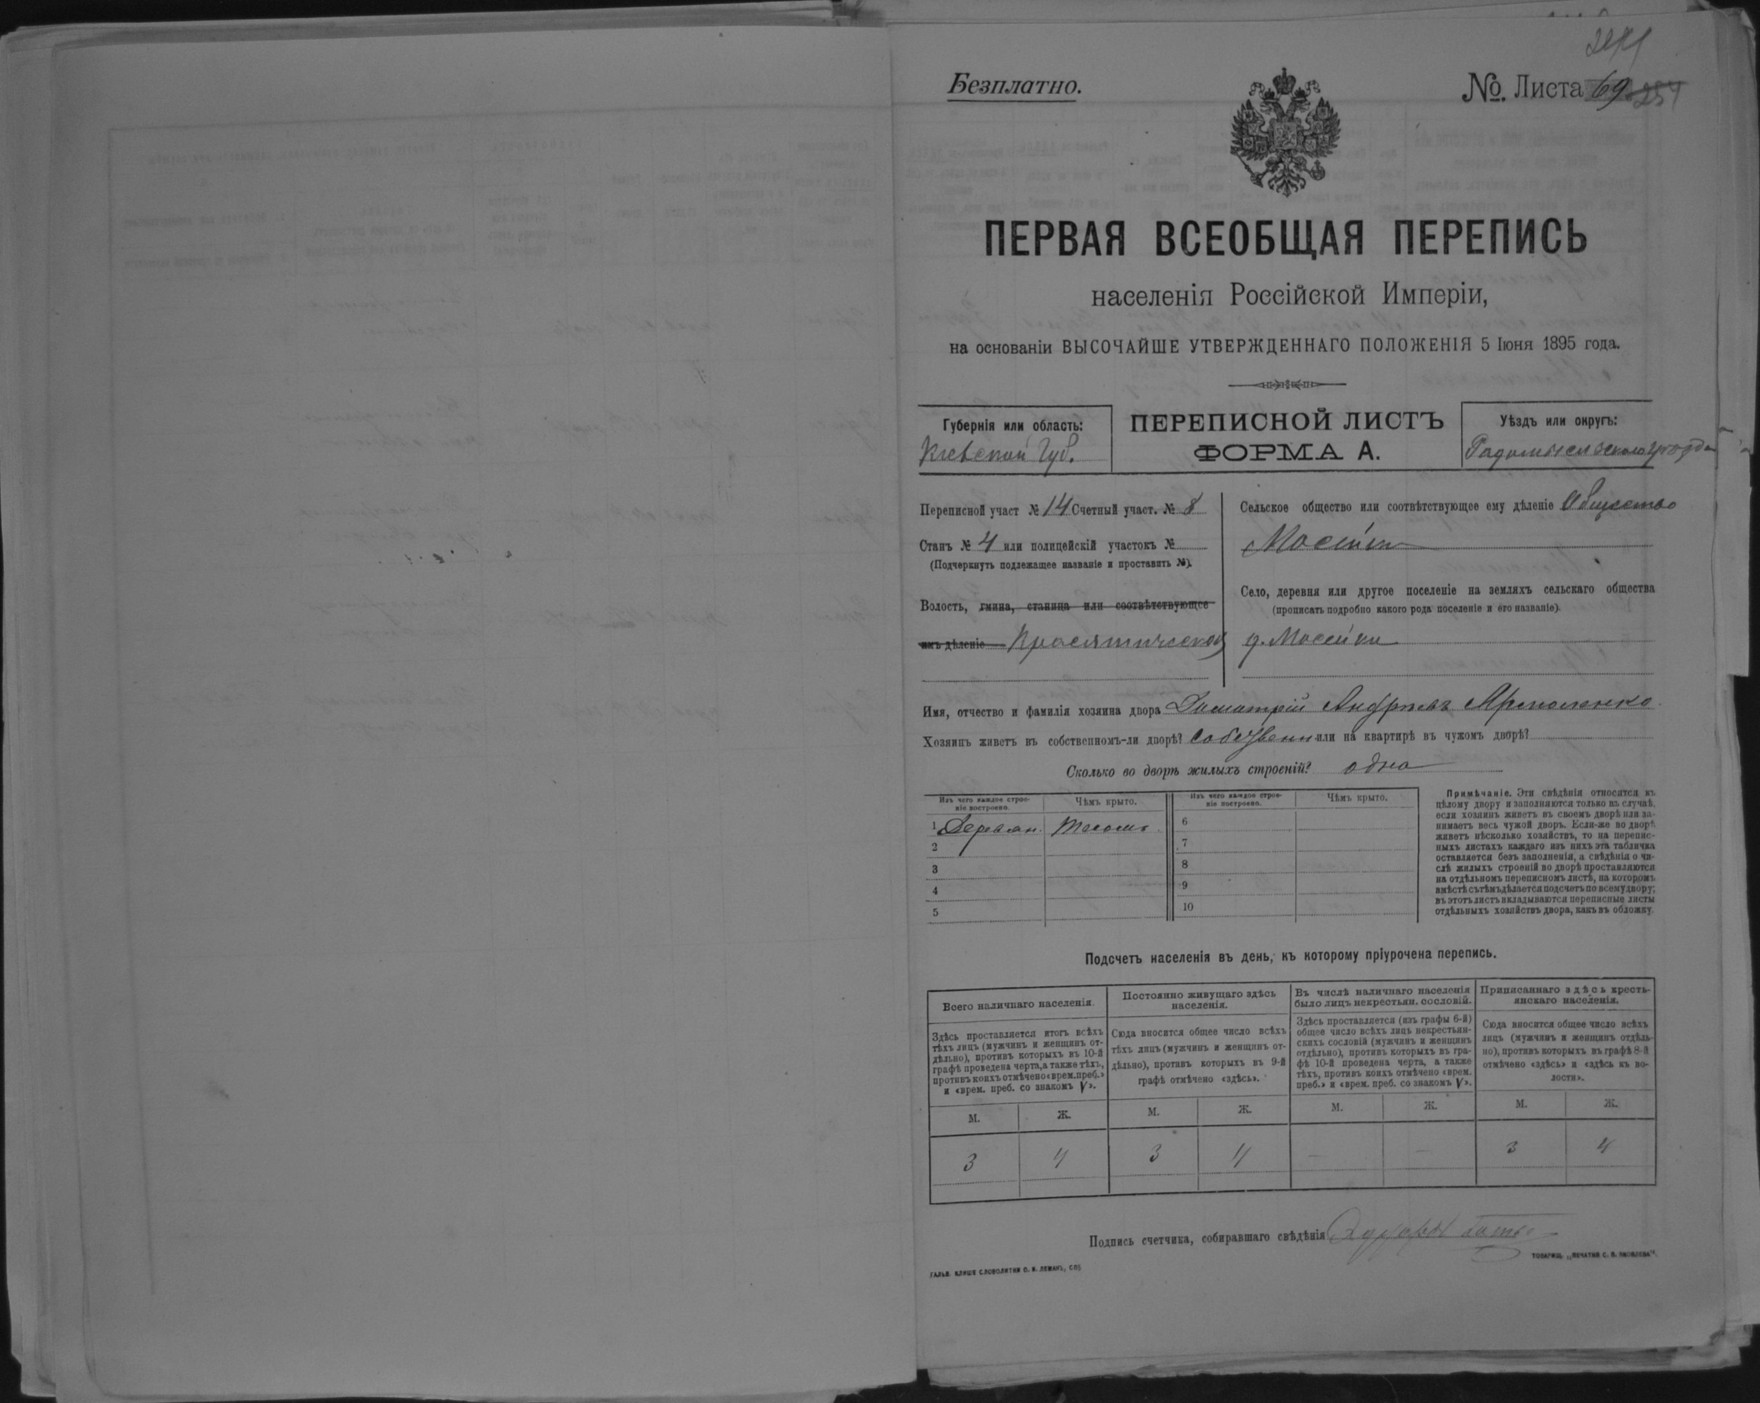 Безплатно.
№. Листа 69
ПЕРВАЯ ВСЕОБЩАЯ ПЕРЕПИСЬ
населенія Россійской Имперіи,
на основаніи ВЫСОЧАЙШЕ УТВЕРЖДЕННАГО ПОЛОЖЕНІЯ 5 Іюня 1895 года.
Губернія или область:
Кіевской Губ.
ПЕРЕПИСНОЙ ЛИСТЪ
ФОРМА А.
Уѣздъ или округъ:
Радомысльскаго уѣзда
Переписной участ № 14 Счетный участ. № 8
Станъ № 4 или полицейскій участокъ №
(Подчеркнуть подлежащее названіе и проставить №).
Волость, гмина, станица или соотвѣтствующее
имъ дѣленіе Красятической
Сельское общество или соотвѣтствующее ему дѣленіе Общество
Мосейки
Село, деревня или другое поселеніе на земляхъ сельскаго общества
(прописать подробно какого рода поселеніе и его названіе).
д. Мосейки
Имя, отчество и фамилія хозяина двора Димитрій Андреевъ Ярмоленко.
Хозяинъ живетъ въ собственномъ-ли дворѣ? собствен или на квартирѣ въ чужомъ дворѣ?
Сколько во дворѣ жилыхъ строеній? одно
Изъ чего каждое строе-
ніе построено.
Чѣмъ крыто.
Изъ чего каждое строе-
ніе построено.
Чѣмъ крыто.
1 Деревян. тесомъ
2
3
4
5
6
7
8
9
10
Примѣчаніе. Эти свѣдѣнія относятся къ
цѣлому двору и заполняются только въ случаѣ,
если хозяинъ живетъ въ своемъ дворѣ или за-
нимаетъ весь чужой дворъ. Если-же во дворѣ
живетъ нѣсколько хозяйствъ, то на перепис-
ныхъ листахъ каждаго изъ нихъ эта табличка
оставляется безъ заполненія, а свѣдѣнія о чи-
слѣ жилыхъ строеній во дворѣ проставляются
на отдѣльномъ переписномъ листѣ, на которомъ
вмѣстѣ съ тѣмъ дѣлается подсчетъ по всему двору;
въ этотъ листъ вкладываются переписные листы
отдѣльныхъ хозяйствъ двора, какъ въ обложку.
Подсчетъ населенія въ день, къ которому пріурочена перепись.
Всего наличнаго населенія.
Здѣсь проставляется итогъ всѣхъ
тѣхъ лицъ (мужчинъ и женщинъ от-
дѣльно), противъ которыхъ въ 10-й
графѣ проведена черта, а также тѣхъ,
противъ коихъ отмѣчено «врем. преб.»
и «врем. преб. со знакомъ V».
Постоянно живущаго здѣсь
населенія.
Сюда вносится общее число всѣхъ
тѣхъ лицъ (мужчинъ и женщинъ от-
дѣльно), противъ которыхъ въ 9-й
графѣ отмѣчено «здѣсь».
Въ числѣ наличнаго населенія
было лицъ некрестьян. сословій.
Здѣсь проставляется (изъ графы 6-й)
общее число всѣхъ лицъ некрестьян-
скихъ сословій (мужчинъ и женщинъ
отдѣльно), противъ которыхъ въ гра-
фѣ 10-й проведена черта, а также
тѣхъ, противъ коихъ отмѣчено «врем.
преб.» и «врем. преб. со знакомъ V».
Приписаннаго здѣсь кресть-
янскаго населенія.
Сюда вносится общее число всѣхъ
лицъ (мужчинъ и женщинъ отдѣль-
но), противъ которыхъ въ графѣ 8-й
отмѣчено «здѣсь» и «здѣсь къ во-
лости».
М. Ж. М. Ж. М. Ж. М. Ж.
3 4 3 4 — — 3 4
Подпись счетчика, собиравшаго свѣдѣнія
ГАЛЬВ. КЛИШЕ СЛОВОЛИТНИ О. И. ЛЕМАНЪ, СПБ.
ТОВАРИЩ. „ПЕЧАТНЯ С. П. ЯКОВЛЕВА".